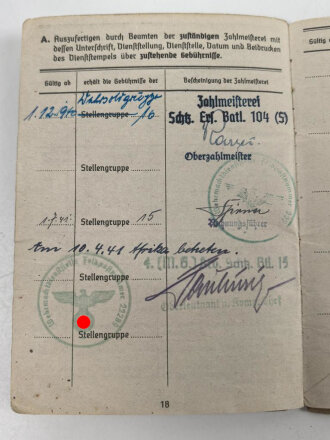 A. Auszufertigen durch Beamten der zuständigen Zahlmeisterei mit
dessen Unterschrift, Dienststellung, Dienststelle, Datum und Beidrucken
des Dienststempels über zustehende Gebührnisse.
Gültig ab
erhält die Gebührnisse der
Bescheinigung der Zahlmeisterei
Wehrsoldgruppe
1.12.40
Stellengruppe 16
Zahlmeisterei
Schtz. Ers. Batl. 104 (S)
Oberzahlmeister
Stellengruppe
1.7.41
Stellengruppe 15
Rechnungsführer
Am 10.4.41 Afrika betreten.
Stellengruppe
Schtz. Btl. 15
Oberleutnant u. Komp. Chef
Stellengruppe
18